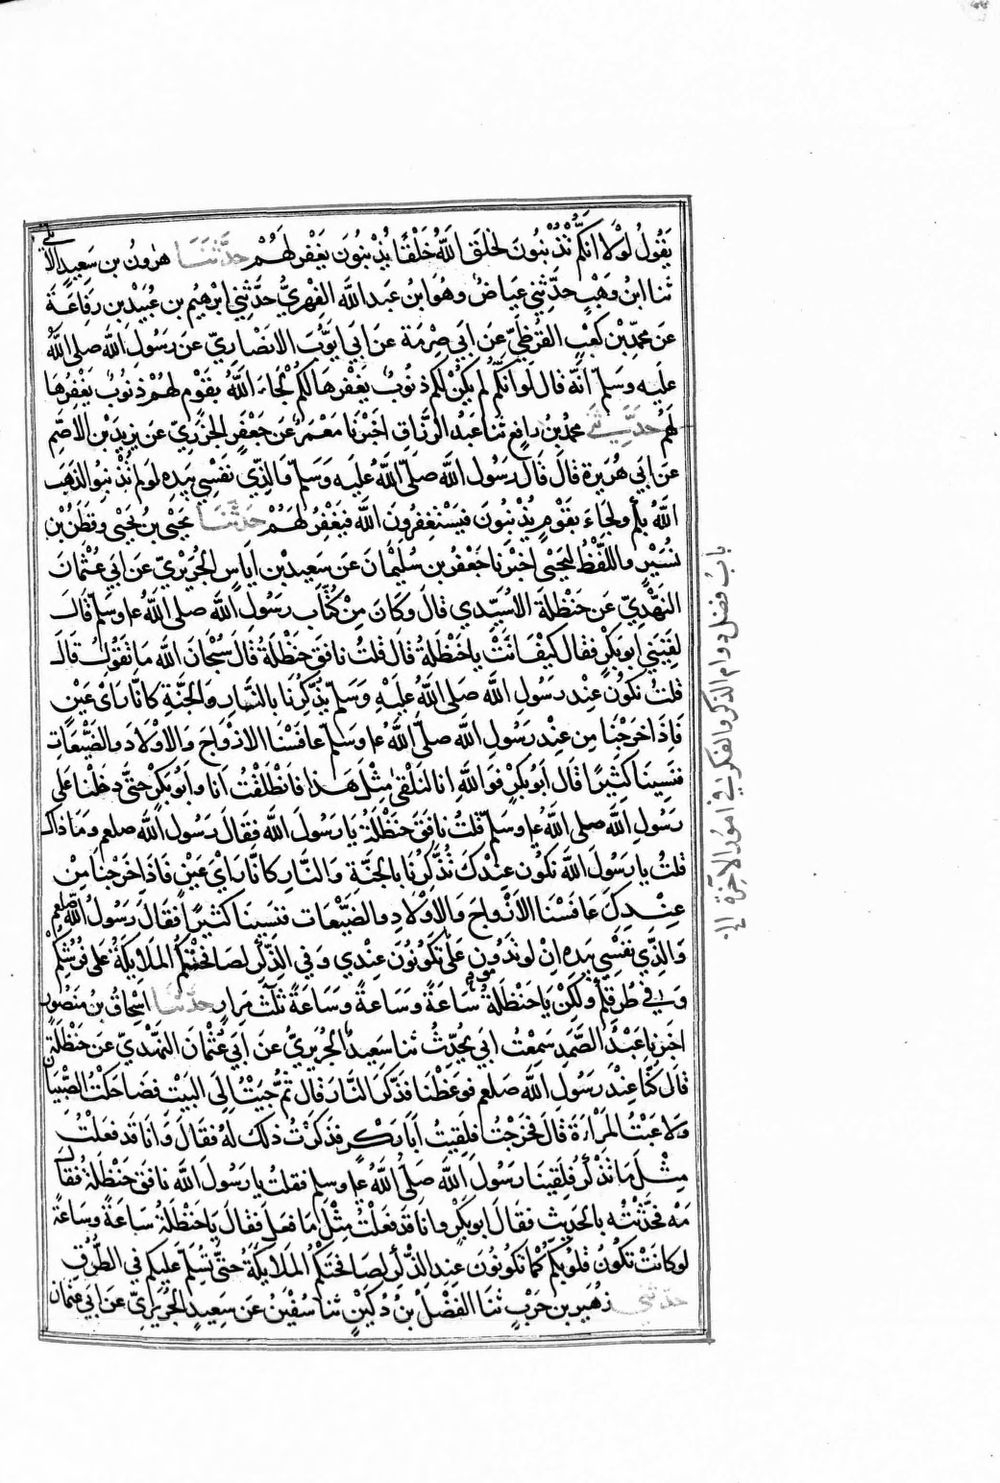 يَقُولُ لَوْلَا انَّكُمْ تُذْنِبُونَ لَخَلَقَ اللهُ خَلْقًا يُذْنِبُونَ يَغْفِرُ لَهُمْ حَدَّثَنَا هٰرونُ بن سَعِيدٍ الايلي
ثنا ابنُ وَهْبٍ حدَّثَنِي عِيَاضٌ وهُوَ ابن عَبد اللهِ الفِهْرِيُّ حدَّثَنِي ابرهيم بن عُبَيْدِ بن رِفَاعَةَ
عَن محمّدِ بْن كَعْبٍ القُرَظِيّ عَن ابي صِرْمَةَ عَن ابي ايّوبَ الانصَاريّ عَن رَسُولِ اللهِ صلى اللهُ
عليه وسَلمَ انّهُ قال لَوْ انكُمْ لم يكُنْ لكم ذنُوبٌ يَغْفِرُهَا لكُمْ لَجَاءَ اللهُ بِقَوْمٍ لهُمْ ذنُوبٌ يَغْفِرُهَا
لَهُمْ حَدَّثَنِي محمّدُ بنُ رافعٍ ثنا عَبدُ الرَّزَّاقِ اخبرَنا مَعْمَرٌ عَن جَعْفَرٍ الجَزَرِيّ عَن يزيدَ بْنِ الاصَمِّ
عَن ابي هُرَيرة قَالَ قَالَ رسُولُ اللهِ صَلّى اللهُ عليهِ وَسَلّمَ وَالّذِي نفسِي بيَدِهِ لَو لم تُذْنِبُوا لذَهَبَ
اللهُ بكُم ولجَاءَ بقَوْمٍ يُذْنِبُونَ فيَسْتغفِرُونَ اللهَ فيَغْفِرُ لهُمْ حَدَّثَنَا يحيَى بنُ يَحْيَى وقَطَنُ بْنُ
نُسَيْرٍ واللَّفْظُ ليَحْيَى اخبرَنا جَعْفَرُ بن سُلَيْمَانَ عَن سَعِيدِ بْنِ ايَاسٍ الجُرَيْرِيّ عَن ابي عُثْمَانَ
النَّهْدِيِّ عَن حَنْظَلَةَ الاُسَيّدي قالَ وكَانَ مِنْ كتّابِ رسُولِ اللهِ صلى اللهُ ع وسَلّم قالَ
لقِيَني ابو بَكْرٍ فقال كيفَ انْتَ يا حَنْظَلَةُ قالَ قلتُ نافَقَ حَنْظَلَةُ قالَ سُبْحَانَ اللهِ مَا تقُولُ قالَ
قلتُ نكُونُ عِنْدَ رسُولِ اللهِ صَلى اللهُ عليْهِ وَسَلّمَ يُذَكِّرُنَا بالنَّارِ والجَنَّةِ كانّا رَايَ عَيْنٍ
فَاذَا خرَجْنَا مِن عِنْدِ رَسُولِ اللهِ صلّى اللهُ ع وسَلمَ عَافَسْنَا الازْوَاجَ وَالاوْلَادَ والضَّيْعَاتِ
فنسِينَا كثِيرًا قالَ ابُو بَكْرٍ فوَاللهِ انّا لنَلْقى مثْلَ هَذا فانْطَلَقْتُ انَا وابُو بَكْرٍ حتَّى دخلْنا على
رسُولِ اللهِ صلى اللهُ ع وسَلمَ قلتُ نافَقَ حَنْظَلَةُ يا رَسُولَ اللهِ فقَالَ رَسُولُ اللهِ صلعم ومَا ذاكَ
قلتُ يا رسُولَ اللهِ نكُونُ عِنْدَكَ تُذَكِّرُنَا بالجَنّة وَالنَّارِ كانّا رَايَ عَيْنٍ فاذا خرَجْنا مِن
عِنْدِكَ عَافَسْنَا الأزوَاجَ وَالاوْلادَ والضَّيْعَات فنَسِينَا كثيرًا فقَالَ رَسُولُ اللهِ صلعم
وَالّذِي نفسِي بيَدِهِ اِنْ لو تَدومُونَ علَى مَا تَكُونُونَ عِنْدي وفي الذِّكْرِ لصَافحَتْكمُ المَلَايكَةُ على فُرُشِكُمْ
وَفي طُرقِكُمْ ولكِنْ يا حَنْظلَةُ سَاعَةً وسَاعَةً وسَاعَةً ثلثَ مِرَارٍ حَدَّثَنَا اسْحاقُ بن مَنصُورٍ
اخبرَنا عَبْدُ الصَّمَدِ سَمِعْتُ ابي يُحَدِّثُ ثنا سَعيدٌ الجُرَيْرِيُّ عَن ابي عُثْمَانَ النَّهْديّ عَن حَنْظَلَةَ
قالَ كنّا عِنْدَ رَسُولِ اللهِ صَلعم فوَعَظَنَا فذكّرَ النَّارَ قالَ ثمَّ جِيتُ اِلَى البَيْتِ فضَاحَكْتُ الصّبْيَانَ
ولَاعَبْتُ المَرْاَةَ قَالَ فخَرَجْتُ فلَقِيتُ أبَا بَكْرٍ فذَكَرْتُ ذلكَ لهُ فقَالَ وَانَا قد فعَلْتُ
مِثْلَ مَا تَذْكُرُ فلَقِينَا رسُولَ اللهِ صَلّى اللهُ ع وسلم فقلتُ يا رَسُولَ اللهِ نافَقَ حَنْظَلَةُ فقَالَ
مَهْ فحَدَّثْتُه بالحَدِيثِ فقالَ ابو بَكْرٍ وانا قد فعَلْتُ مِثْلَ مَا فعَلَ فقالَ يا حَنْظلَةُ سَاعَةً وسَاعَةً
لو كانَتْ تكُونُ قلُوبُكُمْ كمَا تكُونُونَ عِندَ الذّكْرِ لصَافحَتكُمُ المَلَايكَةُ حتّى تُسَلّمَ عليكُم في الطُّرُقِ
حَدَّثَنِي زُهَيرُ بن حَربٍ ثنَا الفَضْلُ بنُ دُكَيْنٍ ثنا سُفْيٰنُ عَن سَعيدٍ الجُرَيْرِيّ عَن ابي عثمَانَ
باب فضل دوام الذكر والفكر في امور الاخرة الخ